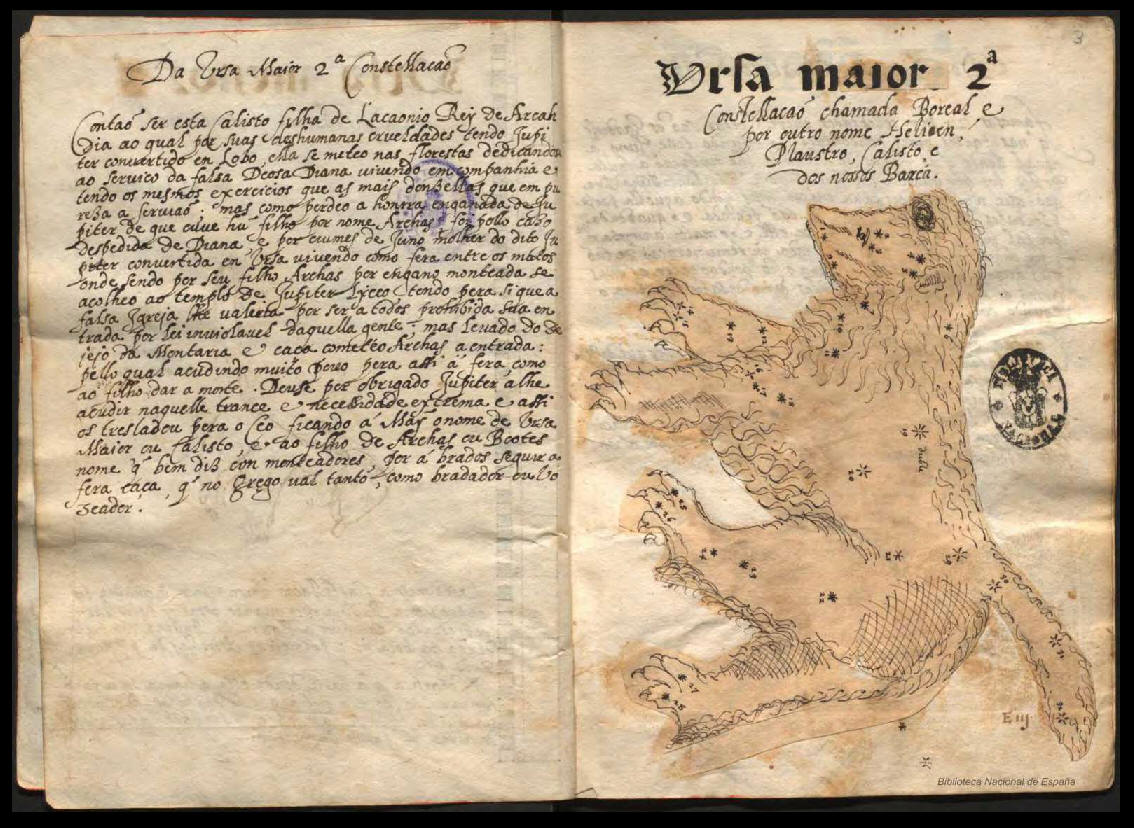 Da Ursa Maior 2ª Constellacaõ
Contaõ ser esta Calisto filha de Lacaonio Rey de Arcah
Dia ao qual por suas deshumanas crueldades tendo Jupi
ter convertido en Lobo, ella se meteo nas florestas dedicandose
ao serviço da falsa Deosa Diana vivendo em companhia e
tendo os mesmos exercicios que as mais donzellas que em pu
reza a serviaõ; mas como perdeo a honrra enganada de Ju
piter de que ouve hũ filho por nome Archas; foy pollo caso
despedida de Diana e por ciumes de Juno molher do dito Ju
piter convertida en Ursa vivendo como fera entre os matos
onde sendo por seu filho Archas por engano monteada se
acolheo ao templo de Jupiter Lyceo tendo pera si que a
falsa Igreja lhe valeria por ser a todos prohibida sua en
trada por lei inviolavel daquella gente; mas levado do de
sejo da Montaria e caça cometeo Archas a entrada:
pello qual acudindo muito povo pera assi á fera como
ao filho dar a morte. Deuse por obrigado Jupiter a lhe
acudir naquelle trance e necessidade extrema e assi
os tresladou pera o Ceo ficando á Mãy o nome de Ursa
Maior ou Calisto, e ao filho de Archas ou Bootes
nome q̃ bem diz con monteadores, por á brados seguir a
fera caça, q̃ no Grego val tanto, como bradador ou vo
zeador.
3
Ursa maior. 2ª
Constellacaõ chamada Boreal e
por outro nome Helicen,
Plaustro, Calisto e
dos nosos Barca.
E iij
Biblioteca Nacional de España